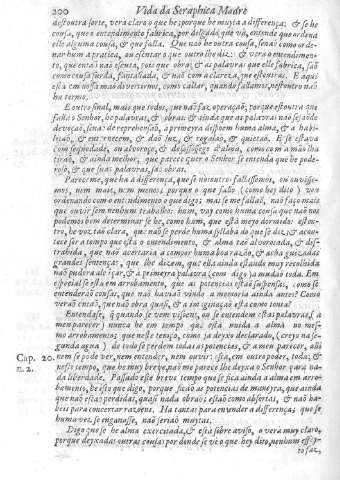 200 Vida da Seraphica Madre
destoutra sorte, verà claro o que he; porque ha muyta a differença; & se he
cousa, que o entendimento fabrica, por delgado que và, entende que ordena
elle alguma cousa, & que falla. Que não he outra cousa, senão como or-
denar hum a pratica, ou escutar o que outro lhe diz: & verà o entendimen-
to, que então não escuta, pois que obra; & as palavras que elle fabrica, são
como cousa surda, fantasiada, & não com a clareza, que estoutras. E aqui
està em nossa mão divertirnos, como callar, quando fallamos; nestoutro não
ha termo.
E outro sinal, mais que todos, que não faz operação; porque estoutra que
falla o Senhor, he palavras, & obras: & ainda que as palavras não sejão de
devação, senão de reprehensão, a primeyra dispoem huma alma, & a habi-
lita, & enternece, & dà luz, & regala, & quieta. E se estava
com sequidade, ou alvoroço, & desassossego a alma, como com a mão lho
tirão, & ainda melhor; que parece quer o Senhor se entenda que he pode-
roso, & que suas palavras, são obras.
Pareceme, que ha a differença, que se nós outros fallassemos, ou ouvisse-
mos, nem mais, nem menos, porque o que fallo (como hey dito) vou
ordenando com o entendimento o que digo; mas se me fallão, não faço mais
que ouvir sem nenhum trabalho: huma, vay como huma cousa que não nos
podemos bem determinar se he, como hum, que està meyo dormido: est-
outro, he voz tão clara, que não se perde huma syllaba do que se diz; & acon-
tece ser a tempo que està o entendimento, & alma tão alvorotada, & dis-
trahida, que não acertaria a compor huma boa razão, & acha guizadas
grandes sentenças, que lhe dizem, que ella ainda estando muy recolhida
não pudera alcançar, & a primeyra palavra (como digo) a muda toda. Em
especial se està em arrobamento, que as potencias estão suspensas, como se
entenderáõ cousas, que não havião vindo a memoria ainda antes? Como
verão então, que não obra quasi, & a imaginação està como tonta?
Entendase, q̃ quando se vem visoens, ou se entendem estas palavras, (a
meu parecer) nunca he em tempo que està unida a alma no mes-
mo arrobamento; que neste tempo, como jà deyxo declarado, (creyo na se-
gunda agoa) de todo se perdem todas as potencias, & a meu parecer, alli
Cap. 20. n. 2. nem se pode ver, nem entender, nem ouvir: està, em outro poder, toda; &
neste tempo, que he muy breve, não me parece lhe deyxa o Senhor para na-
da liberdade. Passado este breve tempo que se fica ainda a alma em arro-
bamento, he isto que digo, porque ficão as potencias de maneyra, que ainda
que não estão perdidas, quasi nada obrão; estão como absortas, & não ha-
beis para concertar razoens. Ha tantas para entender a differença; que se
huma vez se enganasse, não serião muytas.
Digo que se he alma exercitada, & està sobre aviso, o verà muy claro,
porque deyxadas outras cousas por donde se vè o que hey dito, nenhum effey-
to faz,